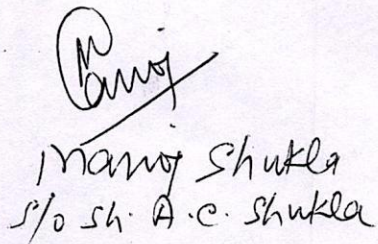 Manoj
Manoj Shukla
S/o Sh. A.C. Shukla